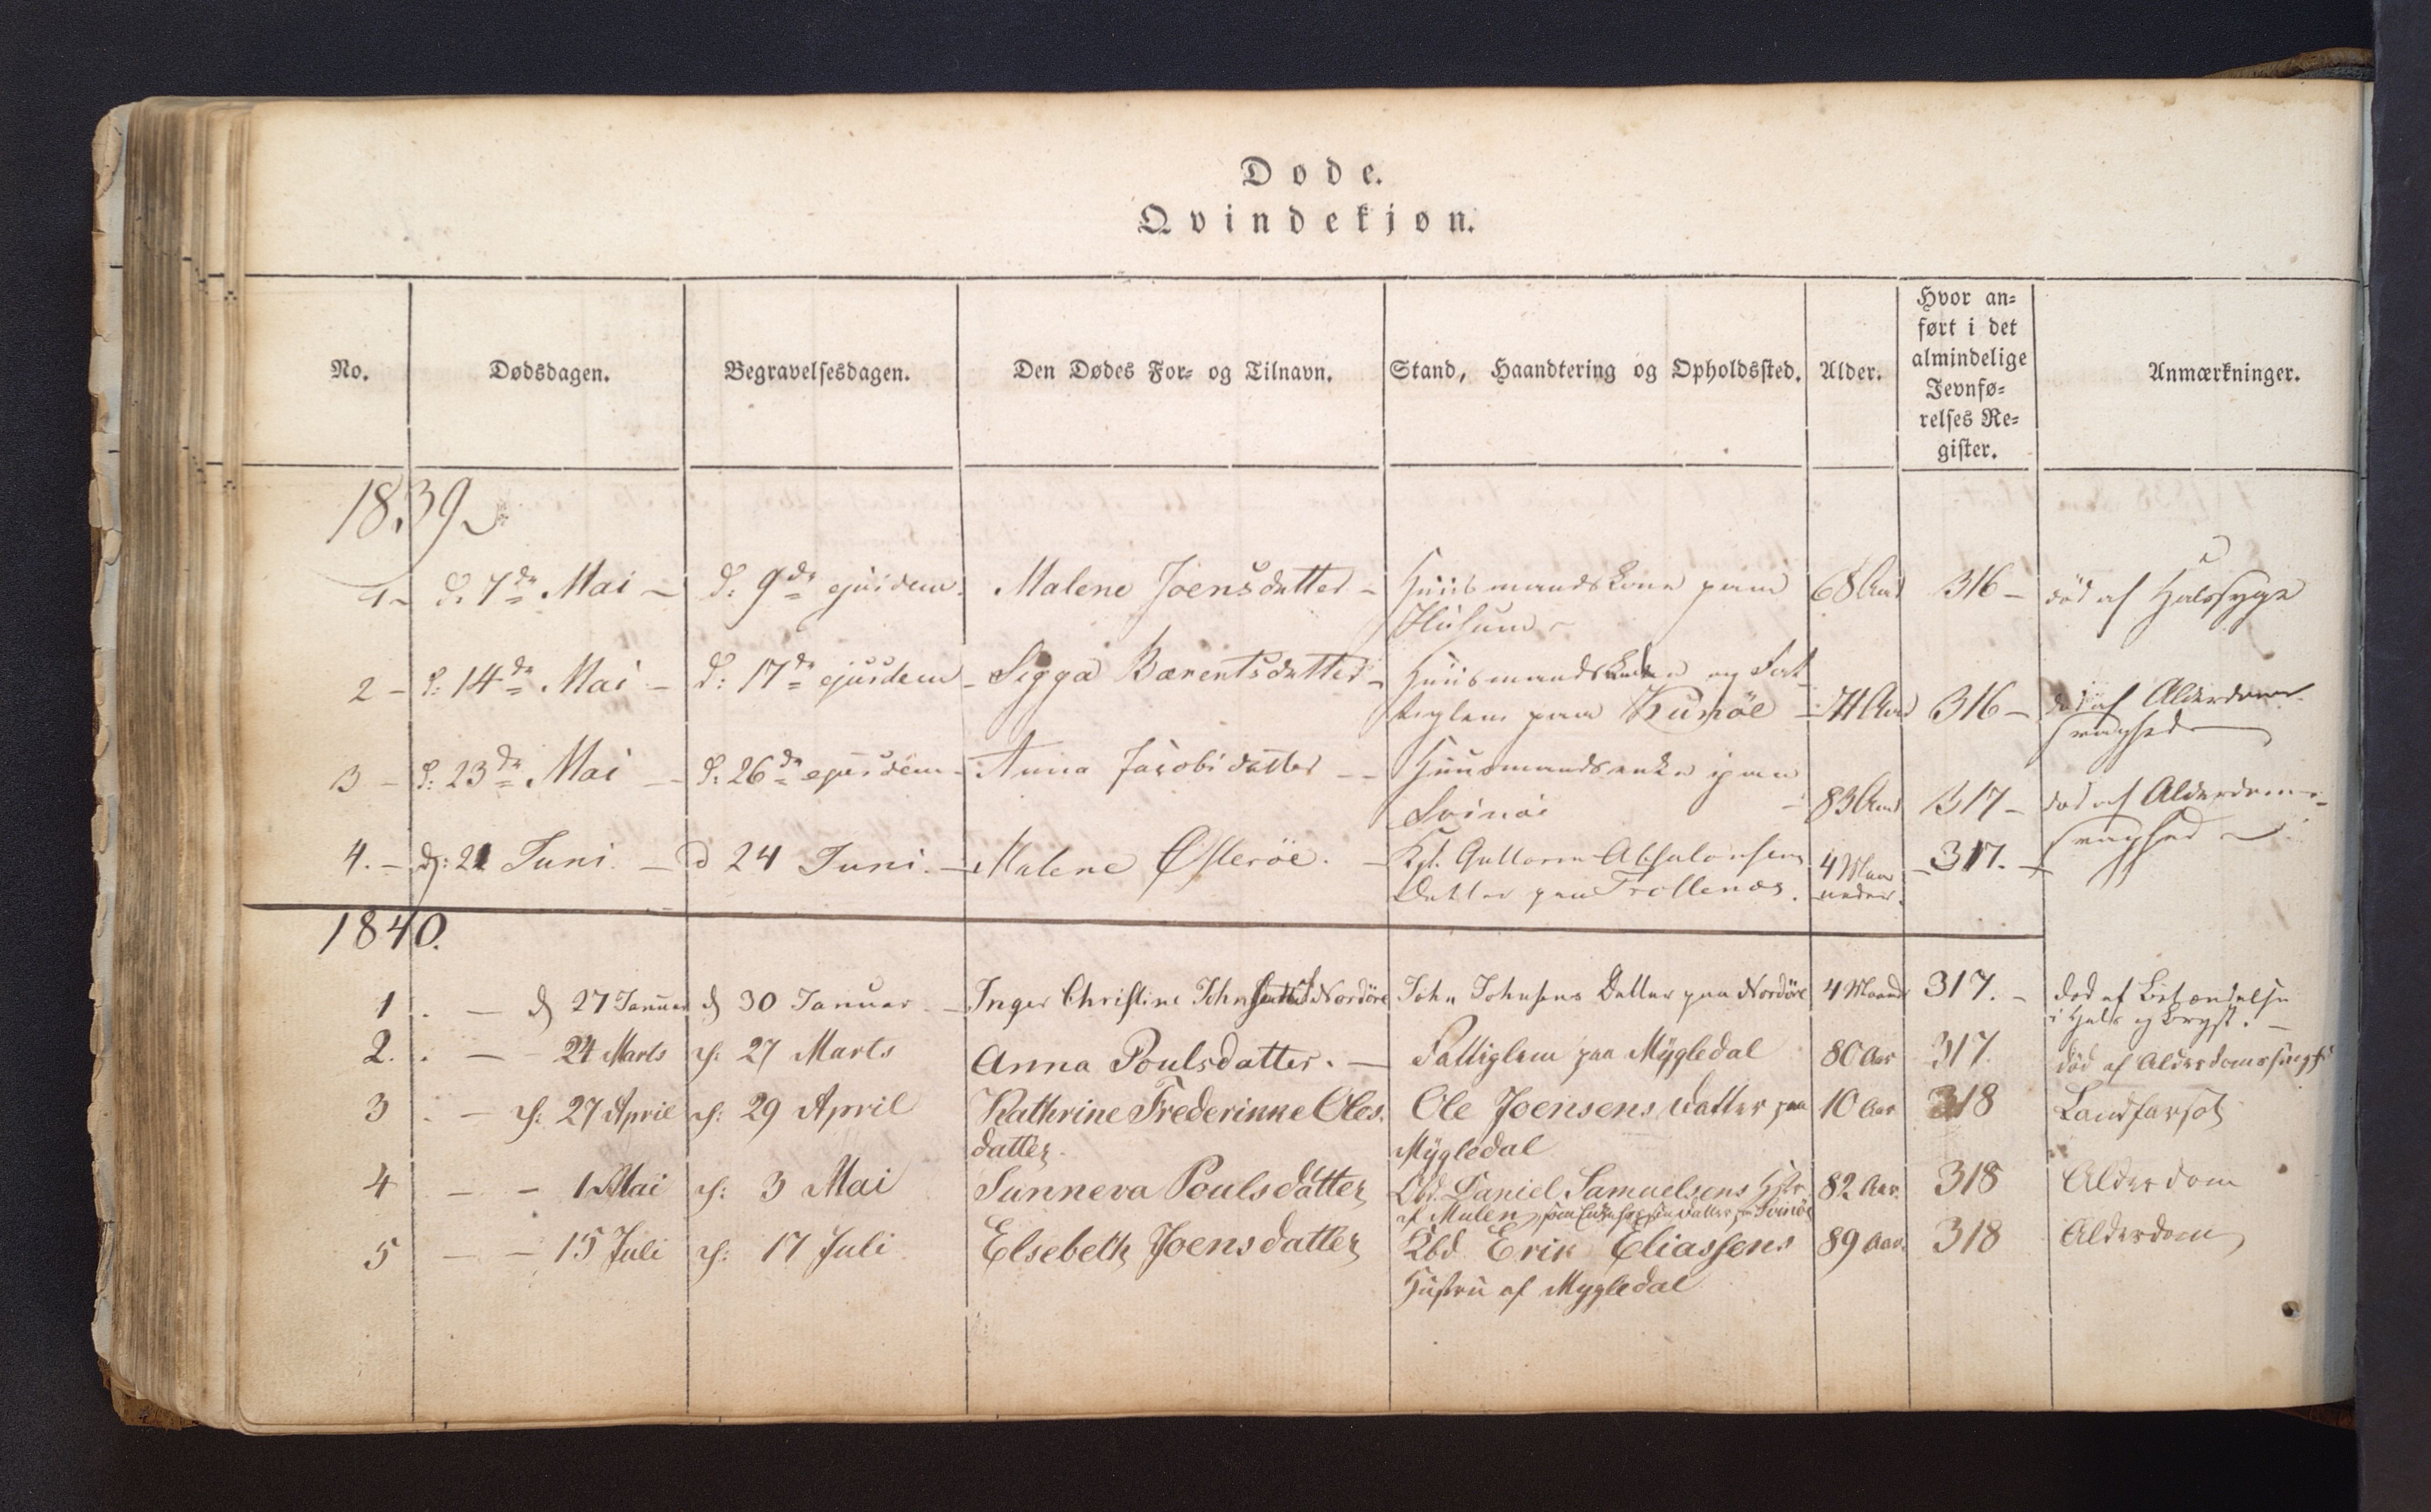 Døde.
Qvindekjøn.
No. Dødsdagen. Begravelsesdagen. Den Dødes For- og Tilnavn. Stand, Haandtering og Opholdssted. Alder. Hvor an-
ført i det
almindelige
Jevnfø-
relses Re-
gister. Anmærkninger.
1839
1 - d. 7de Mai - d: 9de ejusdem. Malene Joensdatter - Huusmandskone paa 68 Aar 316 - död af Halssyge
Husum -
2 - d: 14de Mai - d: 17de ejusdem - Sigga Barentsdatter - Huusmands og Fat-
tiglem paa Kunöe - 74 Aar 316 - död af Alderdoms-
svaghed
3 - d: 23de Mai - d: 26de ejusdem - Anna Jacobsdatter - - Huusmandsenke paa
Svinöi - 83 Aar 317 - død af Alderdoms-
svaghed -
4. - d: 21 Juni. - d 24 Juni. - Malene Østeröe. - Kbd. Guttorm Absalonsens 4 Maa- - 317. -
Datter paa Trollenæs. neder.
1840.
1. - d 27 Januar d 30 Januar - Inger Christine Johnsdatter Nordöre John Johnsens Datter paa Nordöre 4 Maand 317. - død af Betændelse
i Hals og Bryst. -
2. - - 24 Marts d: 27 Marts Anna Poulsdatter. - Fattiglem paa Mygledal 80 Aar 317. död af Alderdomssvagh
3 . - d: 27 April d: 29 April Kathrine Frederikke Oles- Ole Joensens Datter paa 10 Aar 318 Landfarsot
datter. Mygledal
4 - - 1 Mai d: 3 Mai Sunneva Poulsdatter Kbd. Daniel Samuelsens Hstr 82 Aar. 318 Alderdom
af Mulen, Datter Svinöe
5 - - 15 Juli d: 17 Juli Elsebeth Joensdatter Kbd Erik Eliassens 89 Aar. 318 Alderdom
Hustru af Mygledal